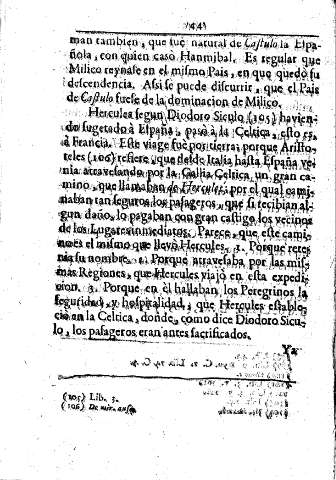 (44)
man tambien, que fue natural de Castulo la Espa-
ñola, con quien casó Hannibal. Es regular que
Milico reynase en el mismo Pais, en que quedó su
descendencia. Asi se puede discurrir, que el Pais
de Castulo fuese de la dominacion de Milico.
Hercules segun Diodoro Siculo (105) havien-
do sugetado à España, pasò à la Celtica, esto es,
à Francia. Este viage fue por tierra; porque Aristo-
teles (106) refiere, que desde Italia hasta España ve-
nia atravesando por la Gallia Celtica un gran ca-
mino, que llamaban de Hercules, por el qual cami-
naban tan seguros los pasageros, que si recibian al-
gun daño, lo pagaban con gran castigo los vecinos
de los Lugares inmediatos. Parece, que este cami-
no es el mismo que llevó Hercules. 1. Porque rete-
nia su nombre. 2. Porque atravesaba por las mis-
mas Regiones, que Hercules viajó en esta expedi-
cion. 3. Porque en èl hallaban los Peregrinos la
seguridad, y hospitalidad, que Hercules estable-
ció en la Celtica, donde, como dice Diodoro Sicu-
lo, los pasageros eran antes sacrificados.
Ya
(105) Lib. 5.
(106) De mir. ausc.